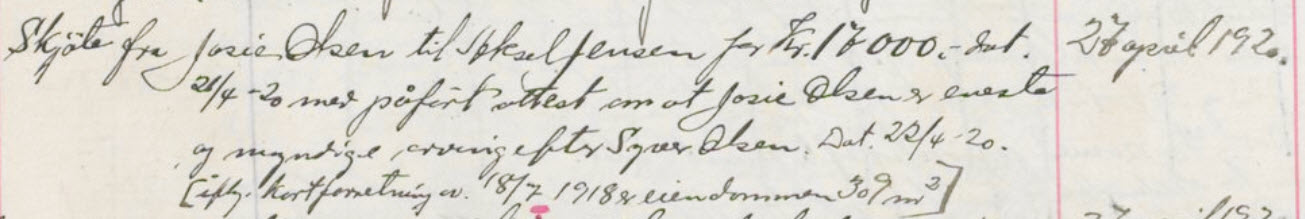 Skjöte fra Josie Olsen til Aksel Jensen for Kr. 17000.- dat. 27 april 1920.
21/4-20 med påfört attest om at Josie Olsen er eneste
og myndige arving efter Syver Olsen. Dat. 22/4-20.
[ifly. kartforretning av 18/7 1918 er eiendommen 309 m²]
april 192